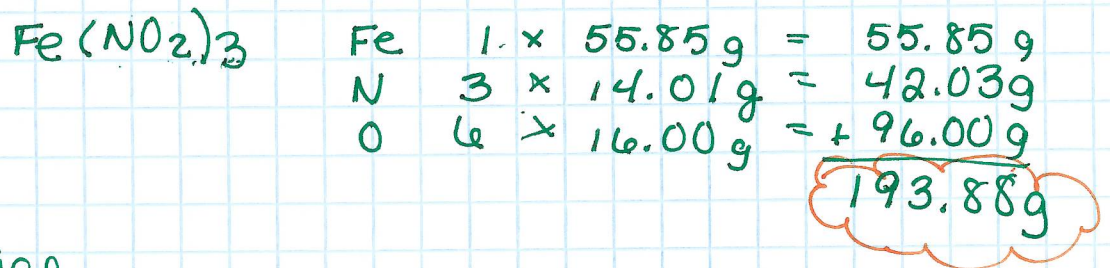 Fe(NO2)3 Fe 1 × 55.85 g = 55.85 g
N 3 × 14.01g = 42.03g
O 6 × 16.00 g = + 96.00 g
193.88g